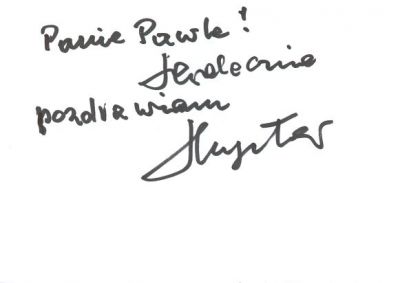 Panie Pawle!
Serdecznie
pozdrawiam